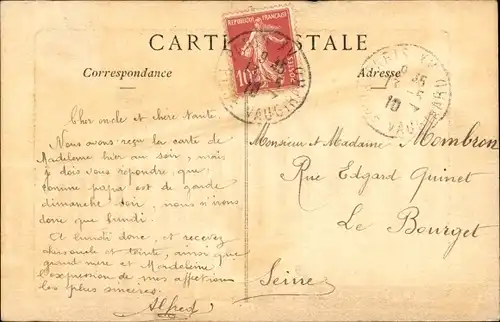 CARTE POSTALE
Correspondance
Adresse
REPUBLIQUE FRANÇAISE
10
POSTES
PARIS XV
R. VAUGIRARD
9 35
Cher oncle et chère tante.
Nous avons reçu la carte de
Madeleine hier au soir, mais
je dois vous repondre, que
comme papa est de garde
dimanche soir, nous n'irons
donc que lundi.
A lundi donc, et recevez
cher oncle et tante, ainsi que
grand mère et Madeleine
l'expression de mes affections
les plus sincères.
Alfred
Monsieur et Madame Mombron
Rue Edgard Quinet
Le Bourget
Seine